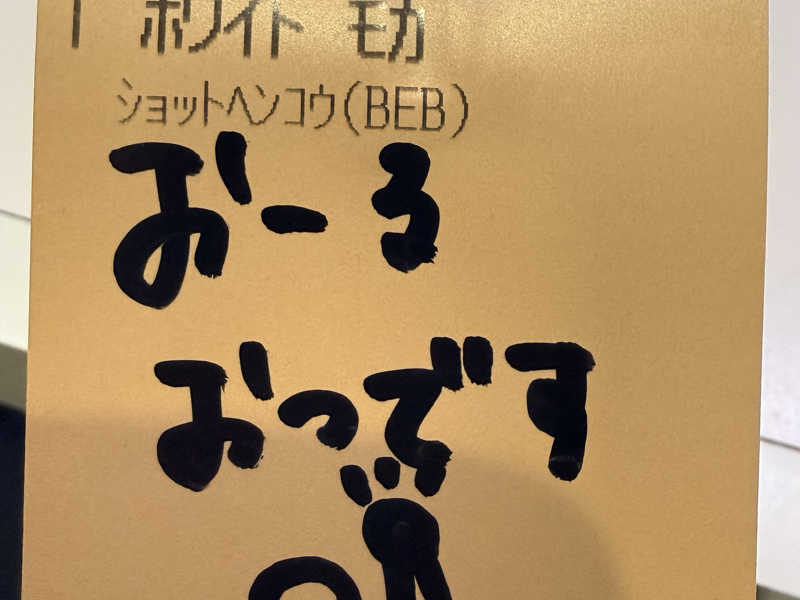 1 ホワイト モカ
ショットヘンコウ(BEB)
おーる
おっです